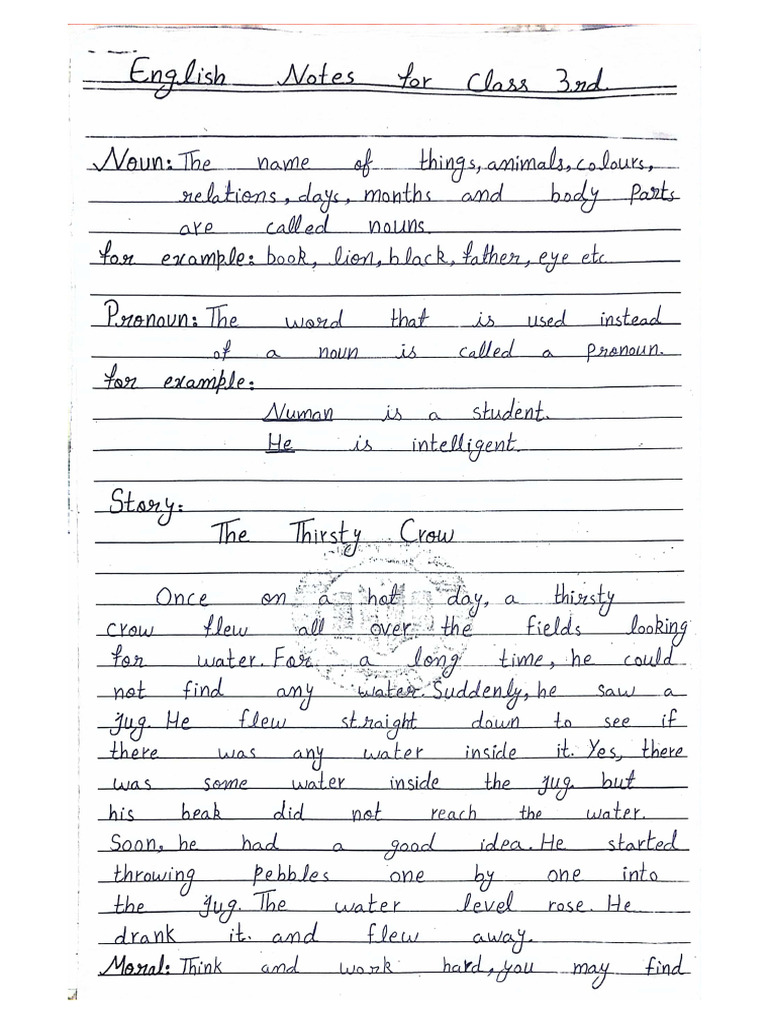 English Notes for Class 3rd.
Noun: The name of things, animals, colours,
relations, days, months and body parts
are called nouns.
for example: book, lion, black, father, eye etc
Pronoun: The word that is used instead
of a noun is called a pronoun.
for example:
Numan is a student.
He is intelligent.
Story:
The Thirsty Crow
Once on a hot day, a thirsty
crow flew all over the fields looking
for water. For a long time, he could
not find any water. Suddenly, he saw a
jug. He flew straight down to see if
there was any water inside it. Yes, there
was some water inside the jug. but
his beak did not reach the water.
Soon, he had a good idea. He started
throwing pebbles one by one into
the jug. The water level rose. He
drank it. and flew away.
Moral: Think and work hard, you may find